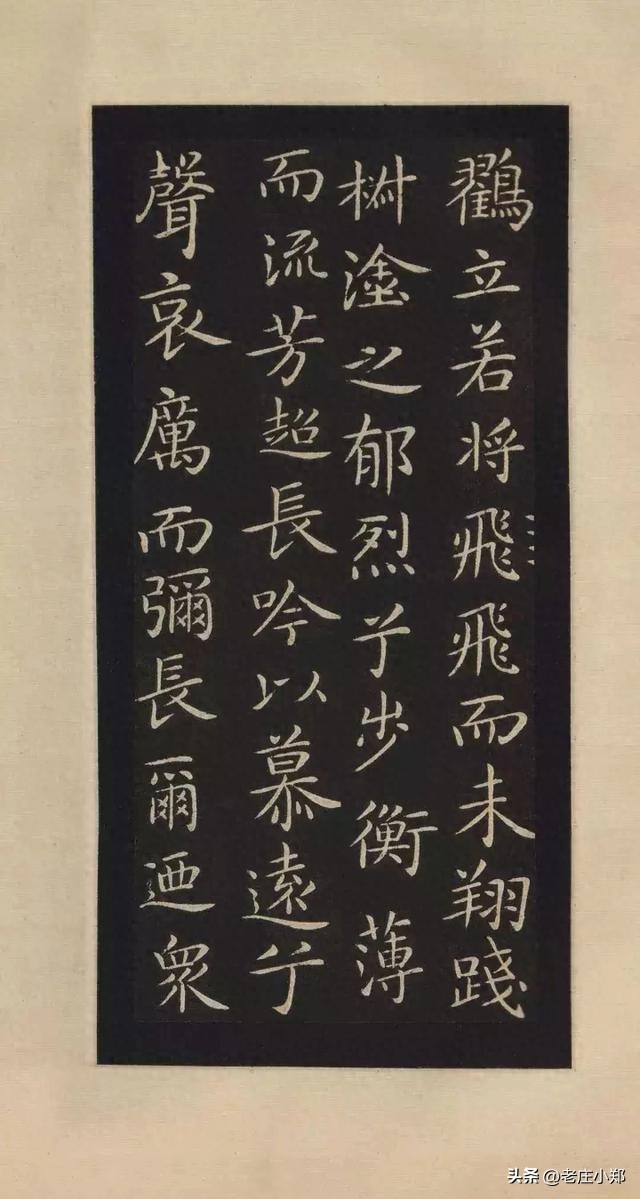 鸖立若将飛飛而未翔踐
椒塗之郁烈兮步衡薄
而流芳超長吟以慕遠兮
聲哀厲而彌長爾迺眾
头条 @老庄小郑